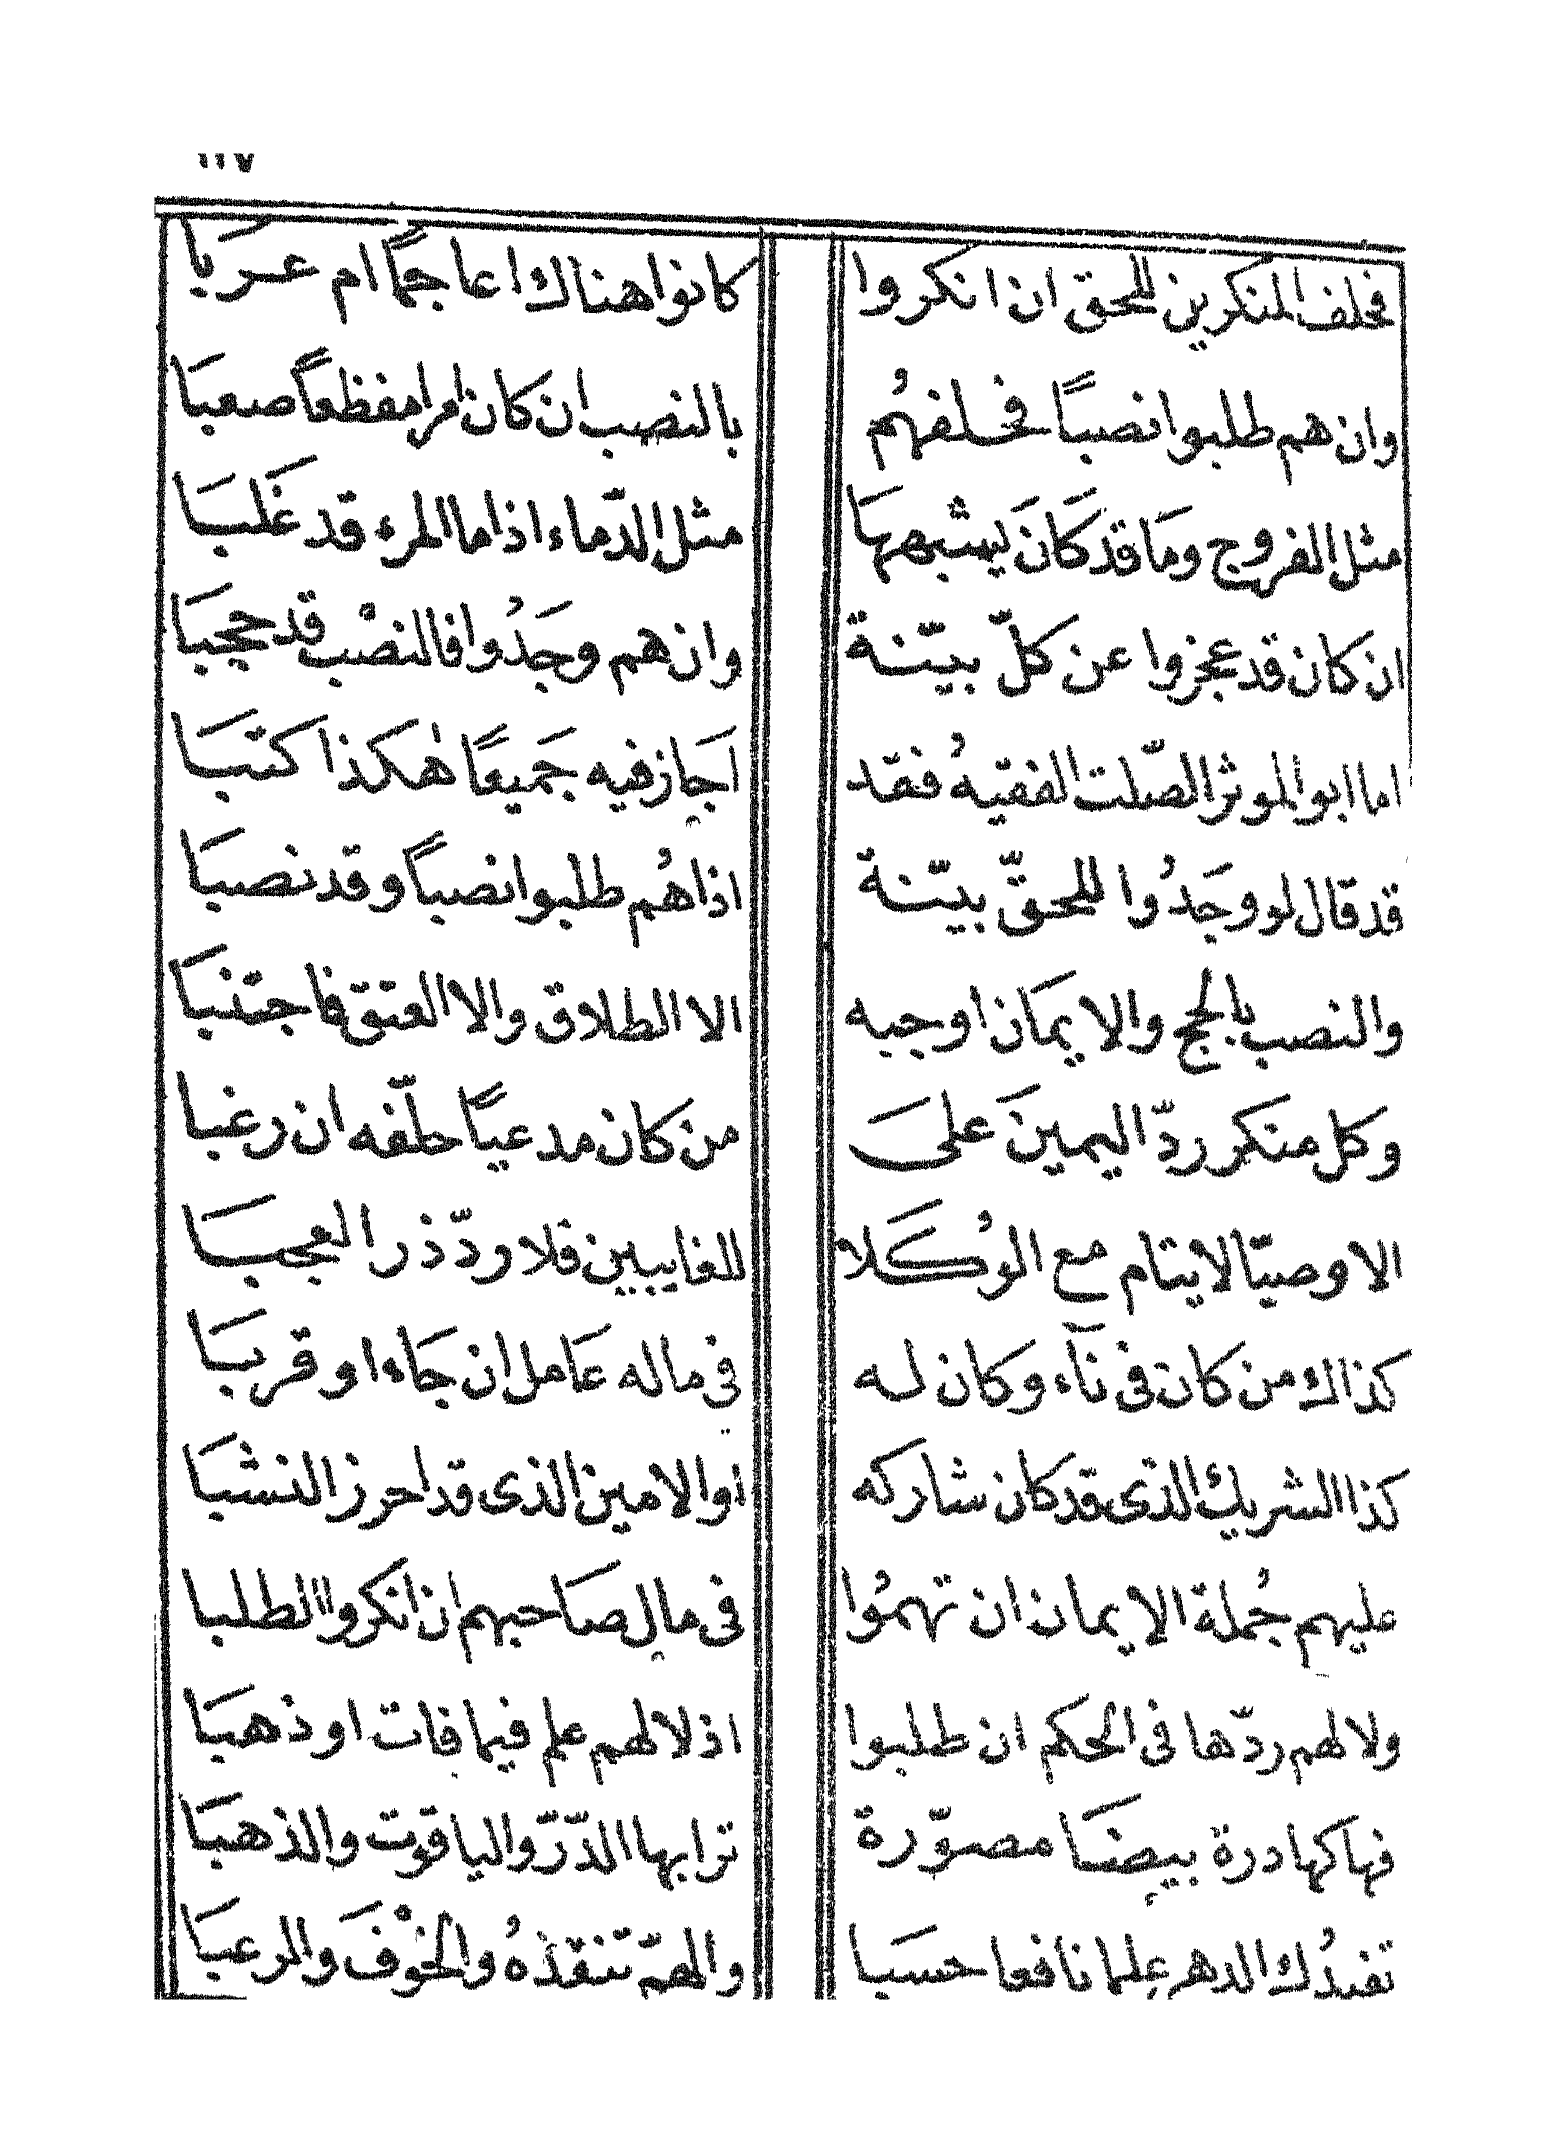 فحلف المنكرين للحق ان انكروا كانوا هناك اعاجمًا ام عربا
وان هم طلبوا نصبًا فحلفهم بالنصب ان كان امرا مفظعاً صعبا
مثل الفروج ومَا قد كانَ يشبهها مثل الدّماء اذا ما المرء قد غلبَا
ان كان قد عجزوا عن كلّ بيّنة وان هم وجَدُوا فالنصْب قد حجبَا
اما ابو الموثر الصّلت الفقيهُ فقد اجَاز فيه جَميعًا هٰكذا كتبَا
قد قال لو وجَدُوا للحقّ بيّنة اذا هُم طلبوا نصباً وقد نصبَا
والنصب بالحج والايمَان اوجبه الا الطلاق والا العتق فاجتنبَا
وكل منكر ردّ اليمينَ علىَ من كان مدعيًا حلّفه ان رغبا
الا وصيّا لايتام مع الوُكَلا للغايبين فلا ردّ ذر العجبَا
كذاك من كان فى نآء وكان له فى ماله عَامل ان جَاء او قربَا
كذا الشريك الذى قد كان شاركه او الامين الذى قد احرز النشبَا
عليهم جُملة الايمان ان تهمُوا فى مال صَاحبهم ان انكروا الطلبا
ولا لهم ردّها فى الحكم ان طلبوا اذ لا لهم علم فيما فات او ذهبَا
فهاكها درة بيضَا مصوّرة ترابها الدّرّ والياقوت والذهبَا
تفيدُك الدهر علما نافعا حسبَا والهمّ تنقذهُ والخوْفَ والرعبَا